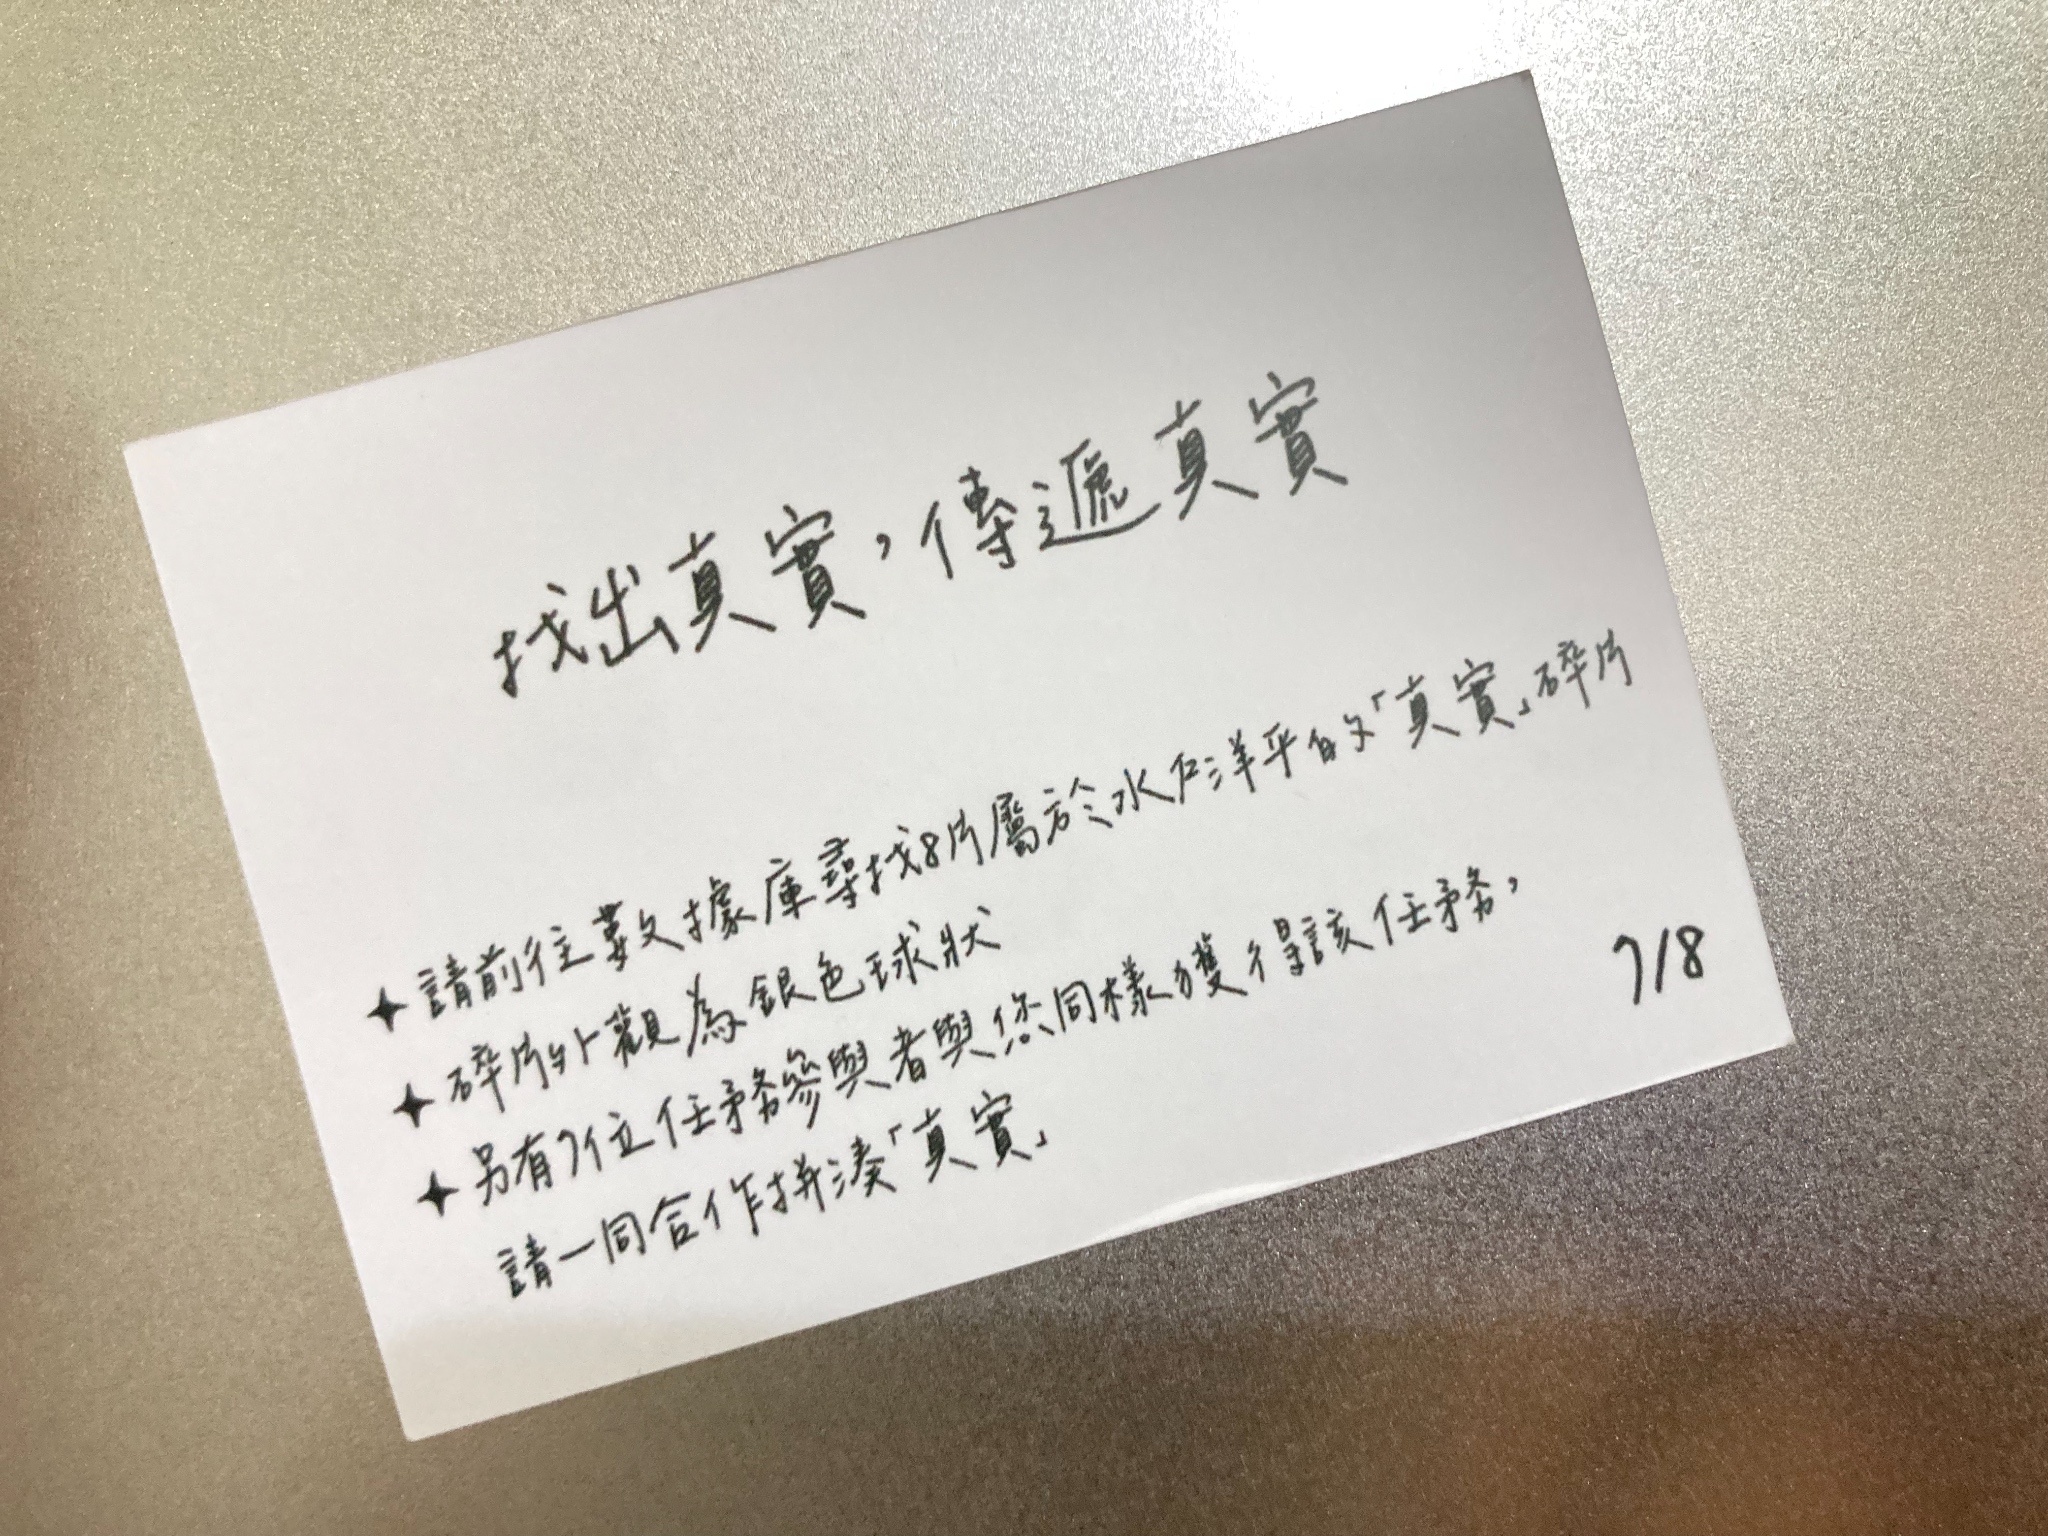 找出真實，傳遞真實
✦請前往數據庫尋找8片屬於水戶洋平的「真實」碎片
✦碎片外觀為銀色球狀
✦另有7位任務參與者與您同樣獲得該任務，
請一同合作拼湊「真實」
7/8